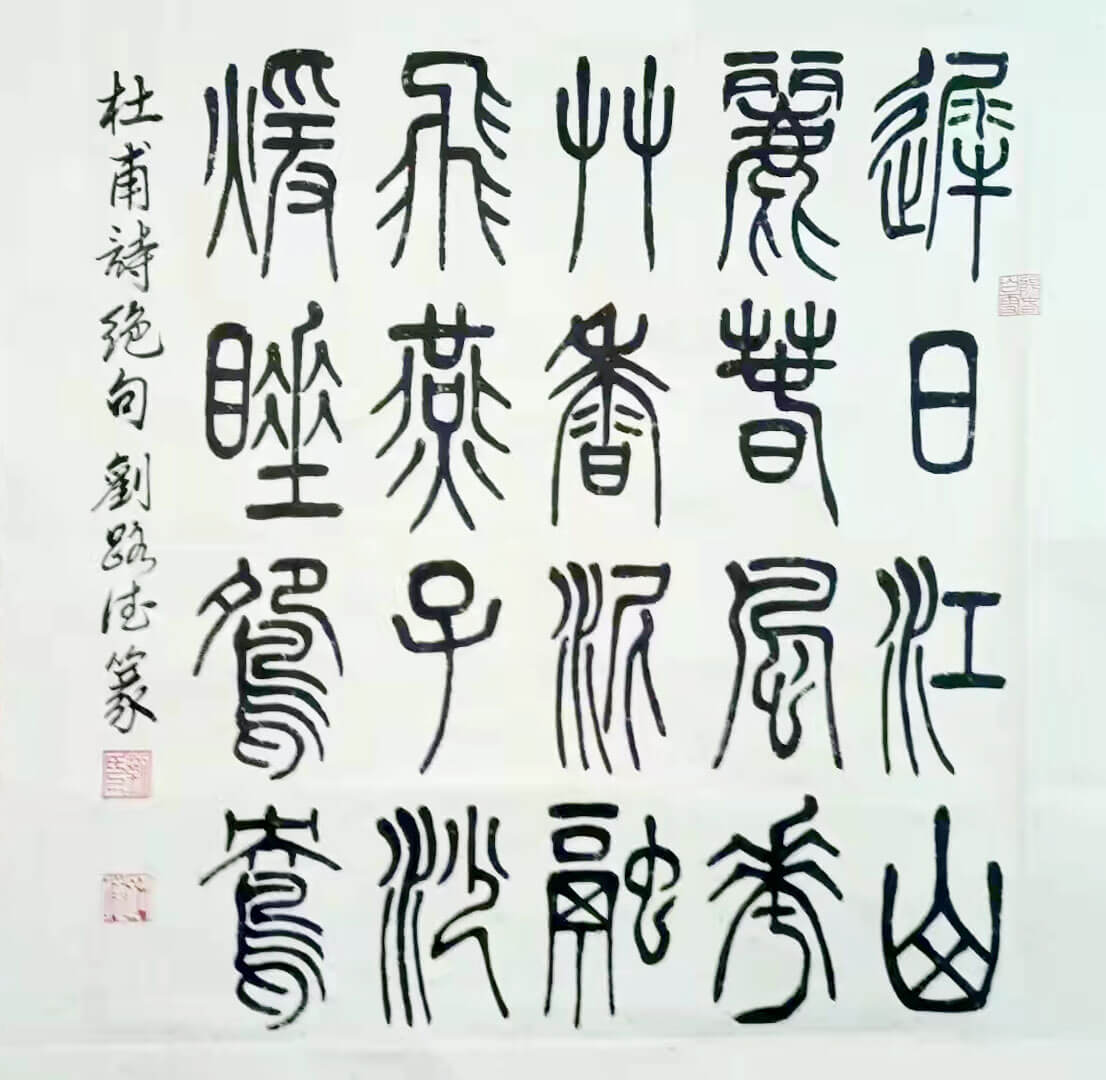 遲日江山
麗春風花
艸香泥融
飛燕子沙
煖睡鴛鴦
杜甫詩絶句劉路篆